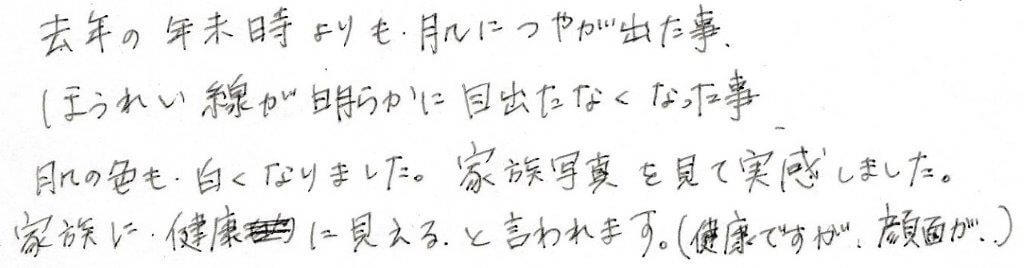 去年の年末時よりも、肌につやが出た事、
ほうれい線が明らかに目出たなくなった事、
肌の色も、白くなりました。家族写真を見て実感しました。
家族に、健康に見える、と言われます。(健康ですが、顔面が、、)